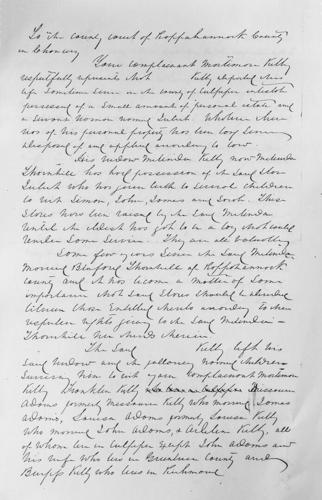 To the county court of Rappahannock County
in Chancery
Your complainant Mortimor Kelly
respectfully represents that Kelly departed this
life sometime since in the county of Culpeper intestate
possessed of a small amount of personal estate and
a servant woman named
of his personal property has been long since
disposed of and applied according to law.
His widow Melinda Kelly now Melinda
Thornhill has had possession of the said slave
who has given birth to several children
to wit Simon, John, James and These
slaves have been raised by the said Melinda
until the oldest has got to be a boy that could
render some service. They are all valuable
Some few years since the said Melinda
Married Binford Thornhill of Rappahannock
county and it has become a matter of some
importance that said slaves should be divided
between those entitled thereto according to their
respective rights giving to the said Melinda
Thornhill her thirds therein
The said Kelly left his
said widow and the following named children
surviving him to wit your complainant Mortimor
Kelly Franklin Kelly Missouri
Adams formerly Missouri Kelly who married James
Adams, Louisa Adams formerly Louisa Kelly
who married John Adams, & Kelly, all
of whom live in Culpeper except John Adams and
his wife who live in County and
Kelly who lives in Richmond